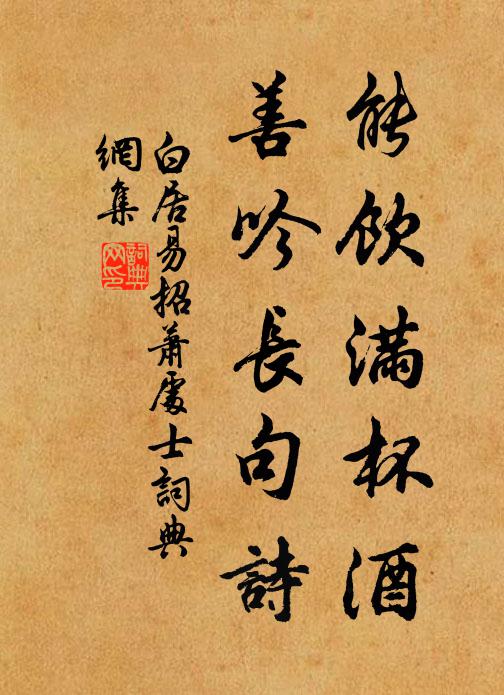 能飲滿杯酒
善吟長句詩
白居易招蕭處士詞典
網集
詞典
网印